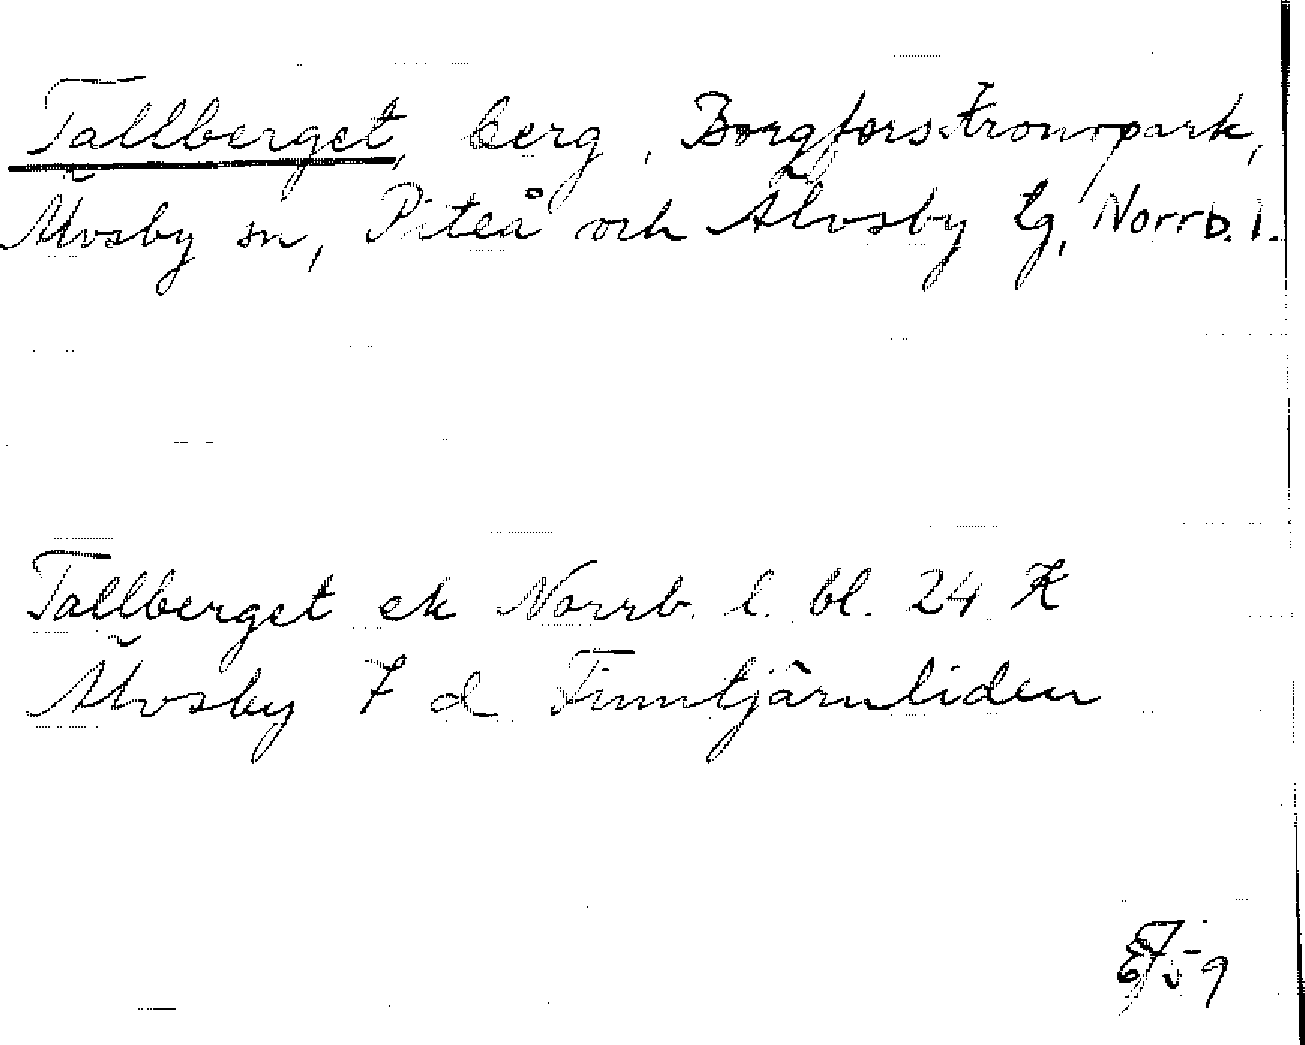 Tallberget, berg, Borgfors kronopark,
Älvsby sn, Piteå och Älvsby tg, Norrb. l.
Tallberget ek Norrb. l. bl. 24 K
Älvsby 7 d Finntjärnliden
59